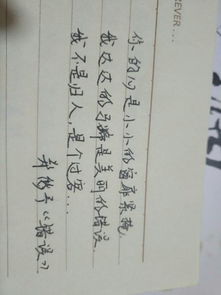 EVER ...
你的心是小小的窗扉紧掩
我达达的马蹄是美丽的错误
我不是归人,是个过客...
郑愁予《错误》